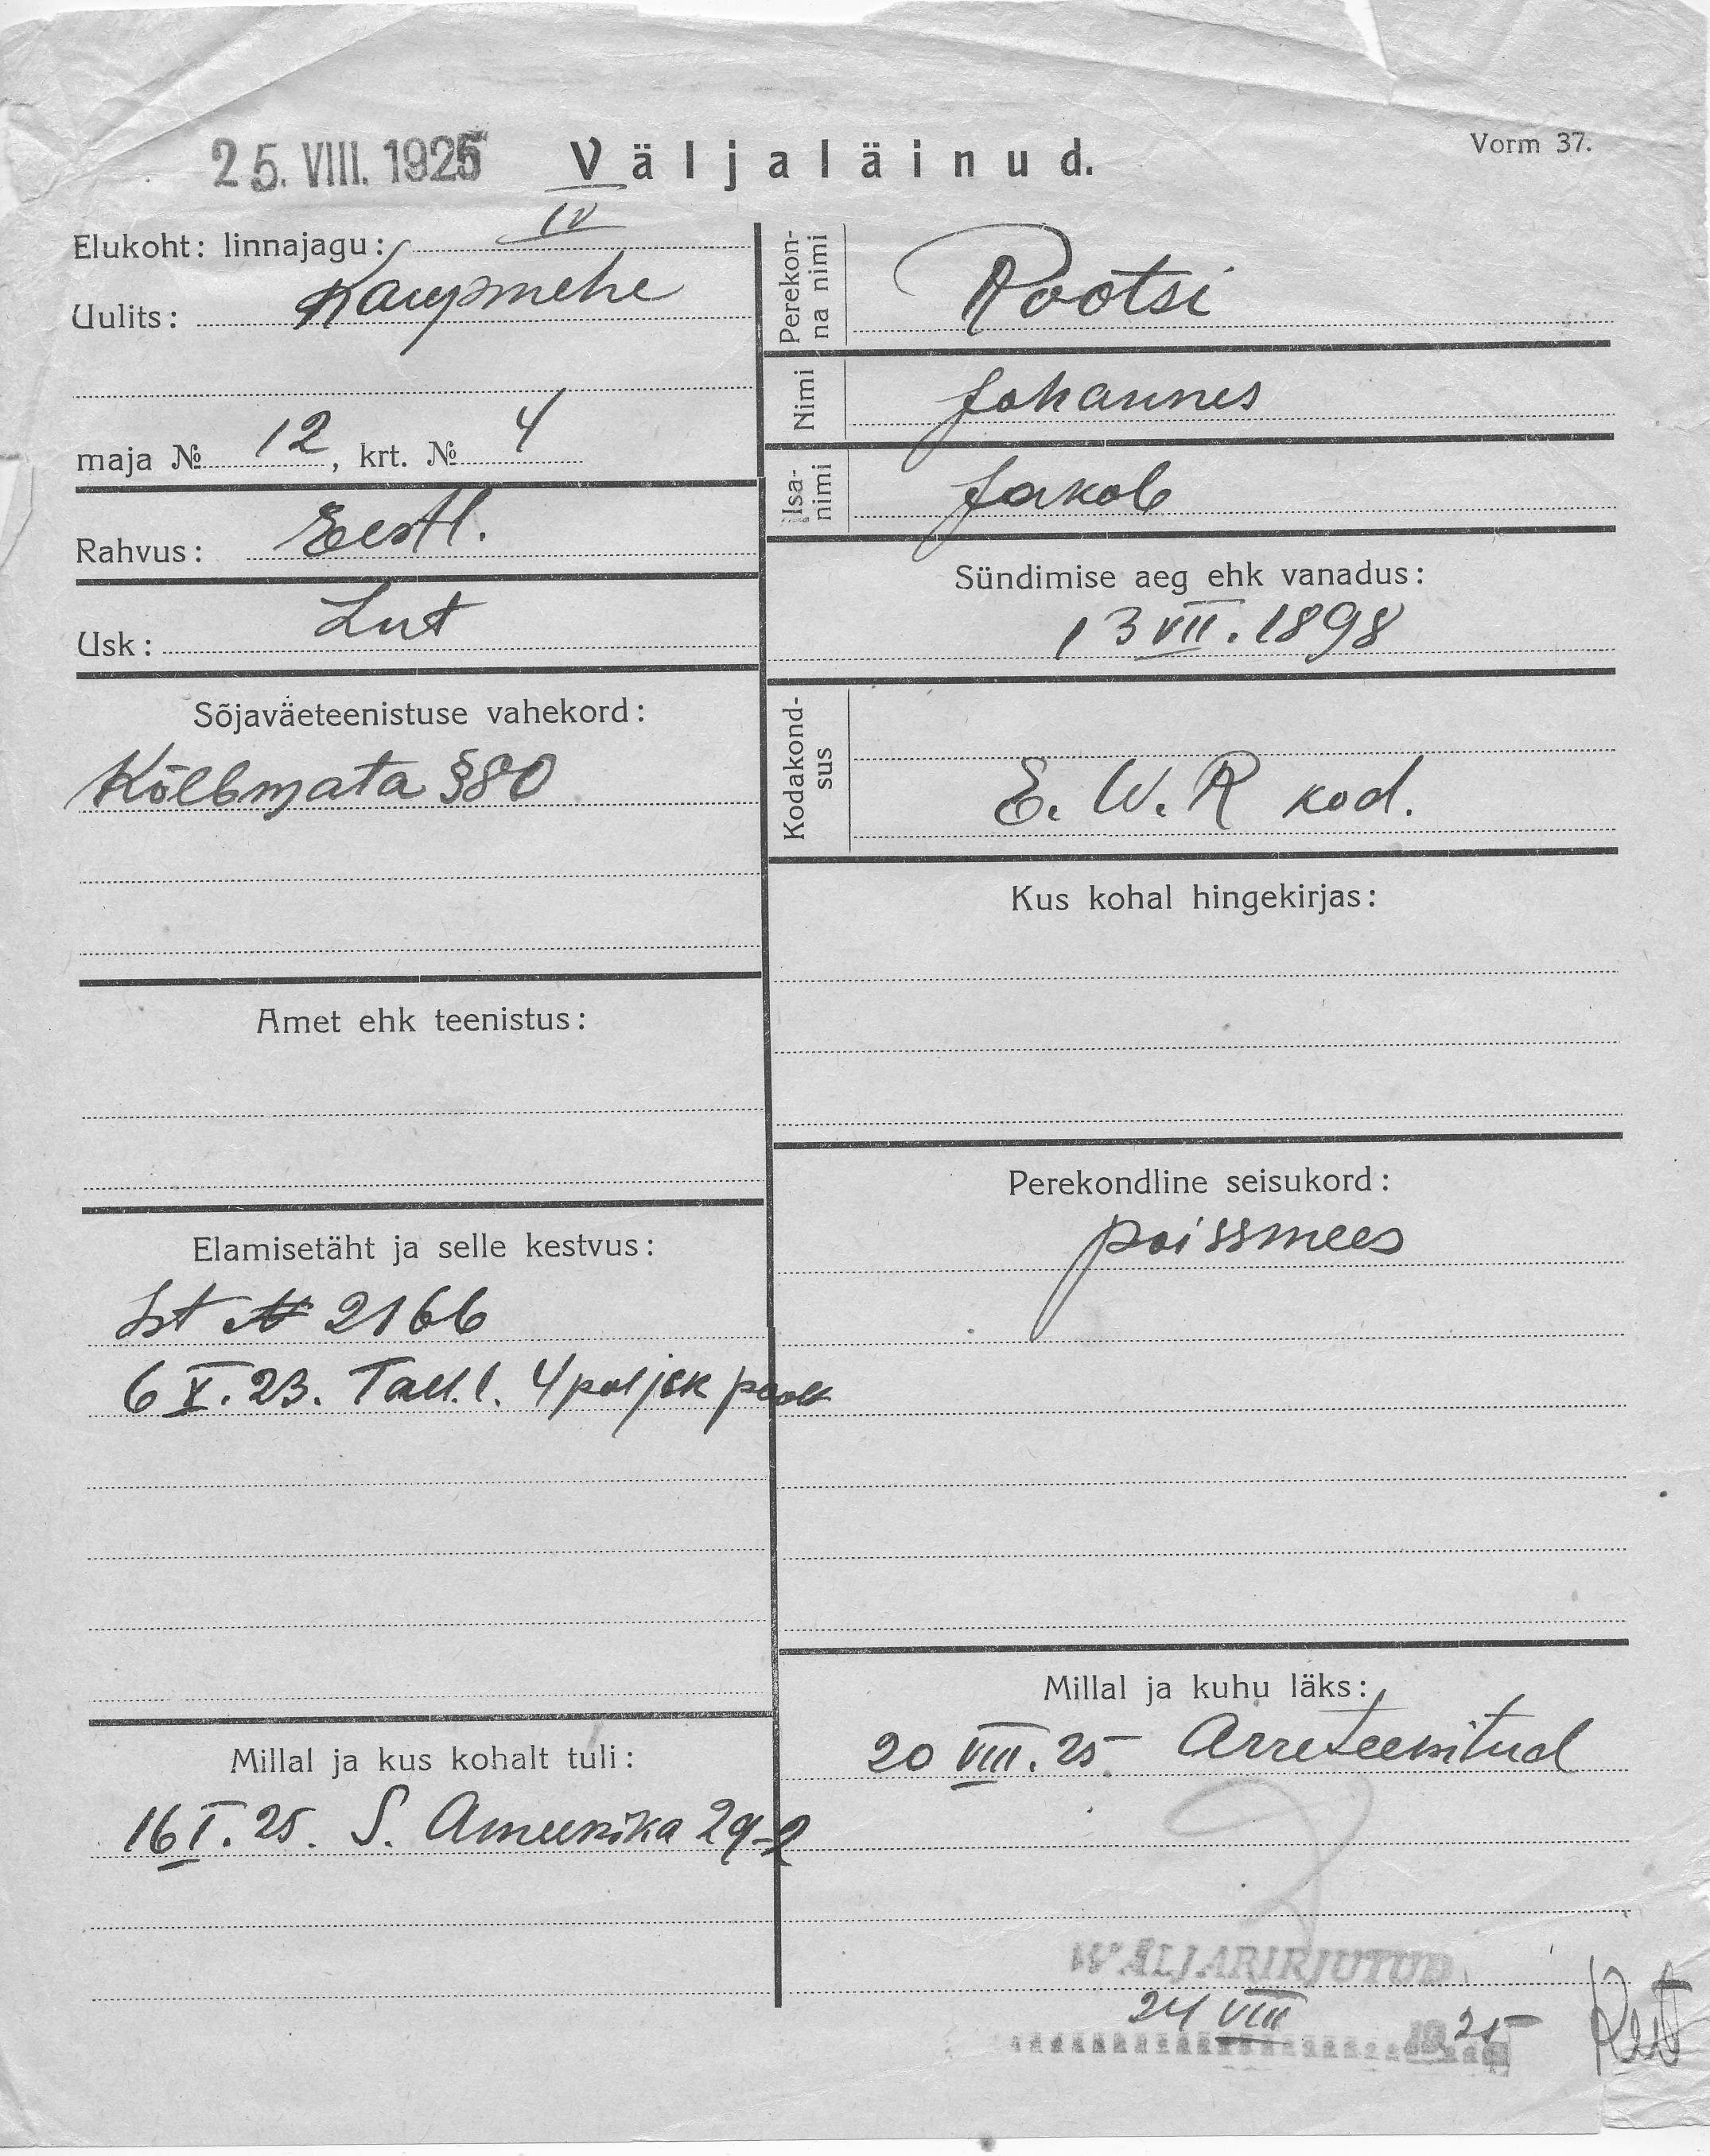 25. VIII. 1925 Väljaläinud. Vorm 37.
Elukoht: linnajagu: IV
Uulits: Kaupmehe
maja № 12, krt. № 4
Rahvus: Eestl.
Usk: Lut
Sõjaväeteenistuse vahekord:
Kõlbmata §80
Amet ehk teenistus:
Elamisetäht ja selle kestvus:
№ 2166
6 X. 23. Tall. l. 4 pol jsk poolt
Millal ja kus kohalt tuli:
16 I. 25. S. Ameerika 29-2
Perekon-
na nimi
Rootsi
Nimi
Johannes
Isa-
nimi
Jakob
Sündimise aeg ehk vanadus:
13 VII. 1898
Kodakond-
sus
E. W. R kod.
Kus kohal hingekirjas:
Perekondline seisukord:
poissmees
Millal ja kuhu läks:
20 VIII. 25 Arreteeritud
WÄLJAKIRJUTUD
24 VIII 1925